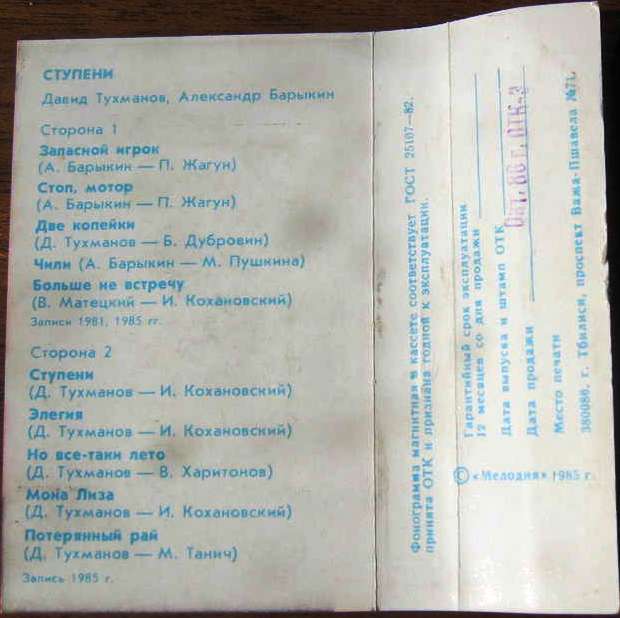 СТУПЕНИ
Давид Тухманов, Александр Барыкин
Сторона 1
Запасной игрок
(А. Барыкин — П. Жагун)
Стоп, мотор
(А. Барыкин — П. Жагун)
Две копейки
(Д. Тухманов — Б. Дубровин)
Чили (А. Барыкин — М. Пушкина)
Больше не встречу
(В. Матецкий — И. Кохановский)
Записи 1981, 1985 гг.
Сторона 2
Ступени
(Д. Тухманов — И. Кохановский)
Элегия
(Д. Тухманов — И. Кохановский)
Но все-таки лето
(Д. Тухманов — В. Харитонов)
Мона Лиза
(Д. Тухманов — И. Кохановский)
Потерянный рай
(Д. Тухманов — М. Танич)
Запись 1985 г.
Фонограмма магнитная в кассете соответствует ГОСТ 25167—82.
принята ОТК и признана годной к эксплуатации.
Гарантийный срок эксплуатации
12 месяцев со дня продажи
Дата выпуска и штамп ОТК
Окт. 86 г. ОТК-3
Дата продажи
Место печати
380086. г. Тбилиси, проспект Важа-Пшавела №71.
© «Мелодия» 1985 г.